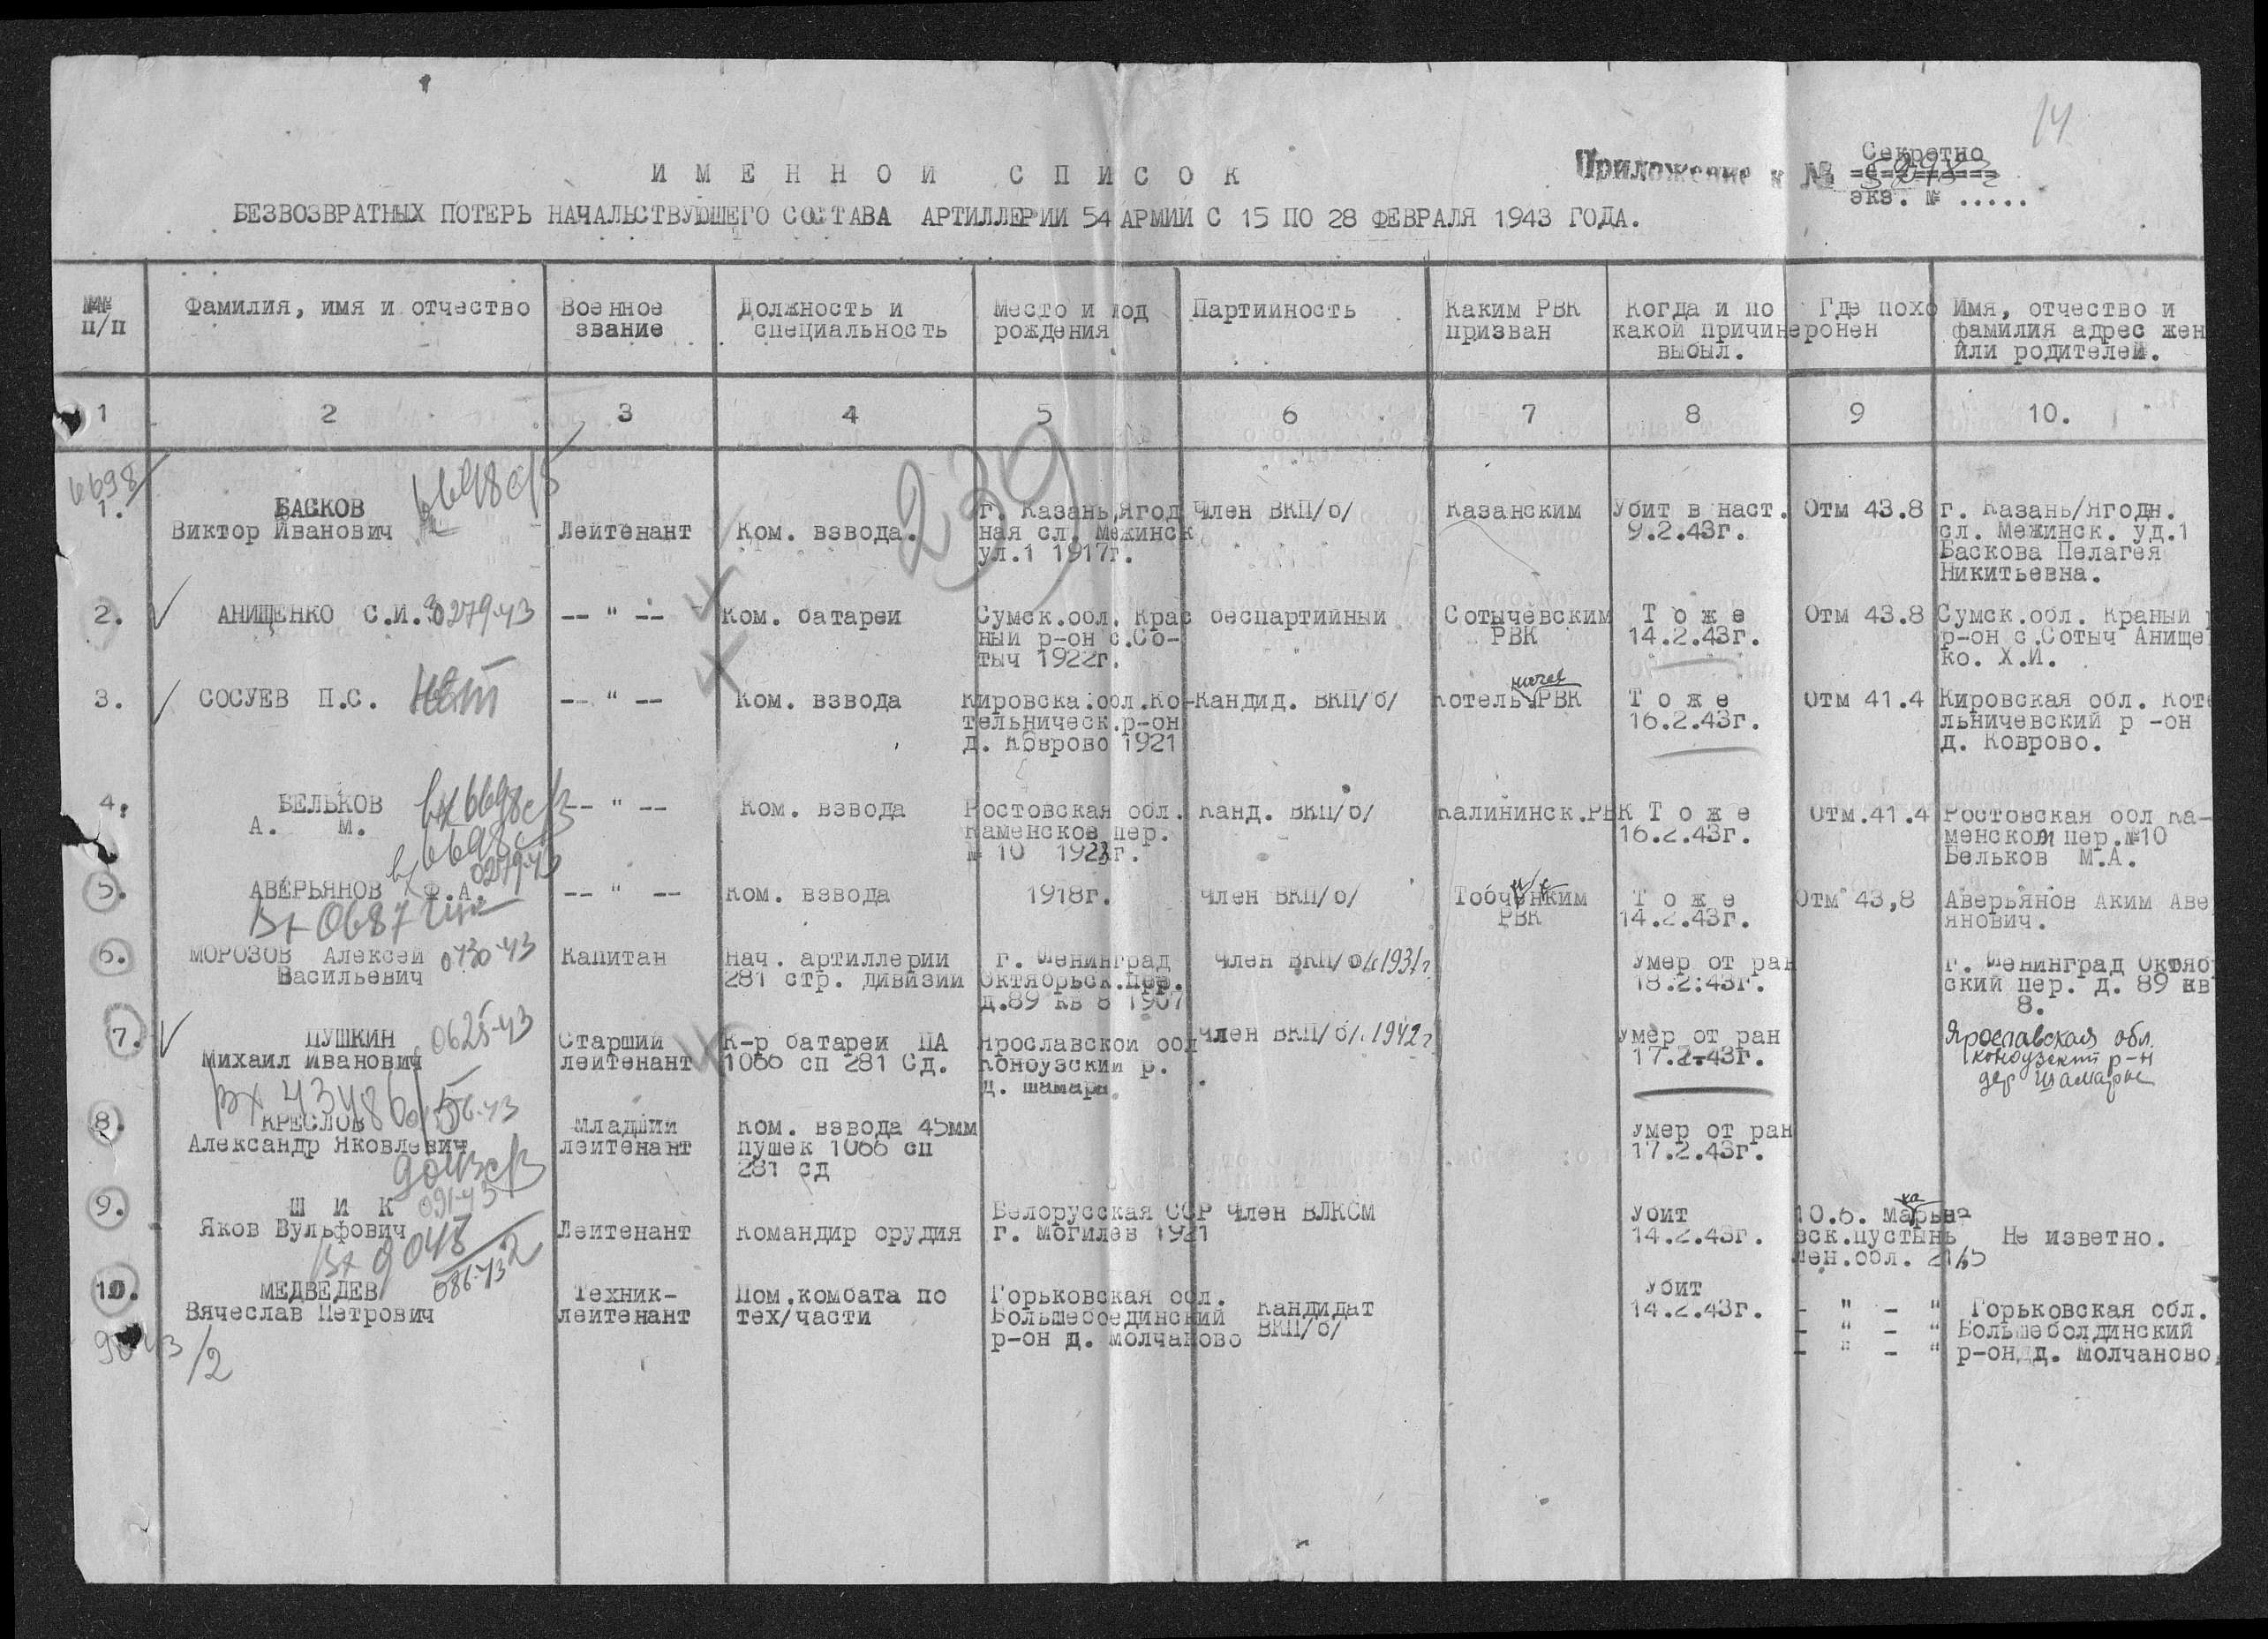 14
Секретно
Приложение к №
экз. № .....
ИМЕННОЙ СПИСОК
БЕЗВОЗВРАТНЫХ ПОТЕРЬ НАЧАЛЬСТВУЮЩЕГО СОСТАВА АРТИЛЛЕРИИ 54 АРМИИ С 15 ПО 28 ФЕВРАЛЯ 1943 ГОДА.
№№ п/п
Фамилия, имя и отчество
Военное звание
Должность и специальность
Место и год рождения
Партийность
Каким РВК призван
Когда и по какой причине выбыл.
Где похоронен
Имя, отчество и фамилия адрес жен или родителей.
1 2 3 4 5 6 7 8 9 10.
239
6698
6698с/5
1. БАСКОВ Виктор Иванович
Лейтенант
Ком. взвода.
г. Казань, Ягод
ная сл. Межинск
ул.1 1917г.
Член ВКП/б/
Казанским
Убит в наст.
9.2.43г.
Отм 43.8
г. Казань/Ягодн.
сл. Межинск. уд.1
Баскова Пелагея
Никитьевна.
2. АНИЩЕНКО С.И. 0279-43
-- " --
Ком. батареи
Сумск.обл. Крас
ный р-он с.Со-
тыч 1922г.
беспартийный
Сотычевским
РВК
Тоже
14.2.43г.
Отм 43.8
Сумск.обл. Краный
р-он с.Сотыч Анище
ко. Х.И.
3. СОСУЕВ П.С. нет
-- " --
Ком. взвода
Кировска.обл.Ко-
тельническ.р-он
д. Коврово 1921
Кандид. ВКП/б/
Котельничев РВК
Тоже
16.2.43г.
Отм 41.4
Кировская обл. Коте
льничевский р -он
д. Коврово.
4. БЕЛЬКОВ
А. М.
вх6698с/3
-- " --
Ком. взвода
Ростовская обл.
Каменсков пер.
№ 10 192 г.
Канд. ВКП/б/
Калининск.РВК
Тоже
16.2.43г.
Отм.41.4
Ростовская обл Ка-
менской пер.№10
Бельков М.А.
вх6698
0279-43
5. АВЕРЬЯНОВ Ф.А.
Вх 0687
-- " --
Ком. взвода
1918г.
Член ВКП/б/
РВК
Тоже
14.2.43г.
Отм 43,8
Аверьянов Аким Аве
янович.
6. МОРОЗОВ Алексей
Васильевич
0730-43
Капитан
Нач. артиллерии
281 стр. дивизии
г. Ленинград
Октябрьск.пер.
д.89 кв 8 1907
Член ВКП/б/с1931г
Умер от ран
18.2.43г.
г. Ленинград Октяб
ский пер. д. 89 кв
8.
7. ПУШКИН
Михаил Иванович
0625-43
Старший
лейтенант
К-р батареи ПА
1066 сп 281 Сд.
Ярославской обл
Коноузский р.
д. Шамары.
Член ВКП/б/с 1942г
Умер от ран
17.2.43г.
Ярославская обл.
коноузский р-н
дер Шамары
Вх 43486/5
8. КРЕСЛОВ
Александр Яковлевич
Младший
лейтенант
Ком. взвода 45мм
пушек 1066 сп
281 сд
Умер от ран
17.2.43г.
9. ШИК
Яков Вульфович
Лейтенант
Командир орудия
Белорусская ССР
г. Могилев 1921
Член ВЛКСМ
Убит
14.2.43г.
вск.пустынь
Лен.обл.
Не изветно.
Вх 9043
086-43
10. МЕДВЕДЕВ
Вячеслав Петрович
Техник-
лейтенант
Пом.комбата по
тех/части
Горьковская обл.
Большебоединский
р-он д. Молчаново
Кандидат
ВКП/б/
Убит
14.2.43г.
- " - "
- " - "
- " - "
Горьковская обл.
Большеболдинский
р-он, д. Молчаново,
9043
/2